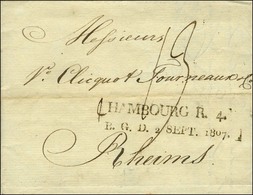 Messieurs
Ve. Clicquot Fourneaux & C
HAMBOURG R. 4.
B. G. D. 2 SEPT. 1807.
Rheims.